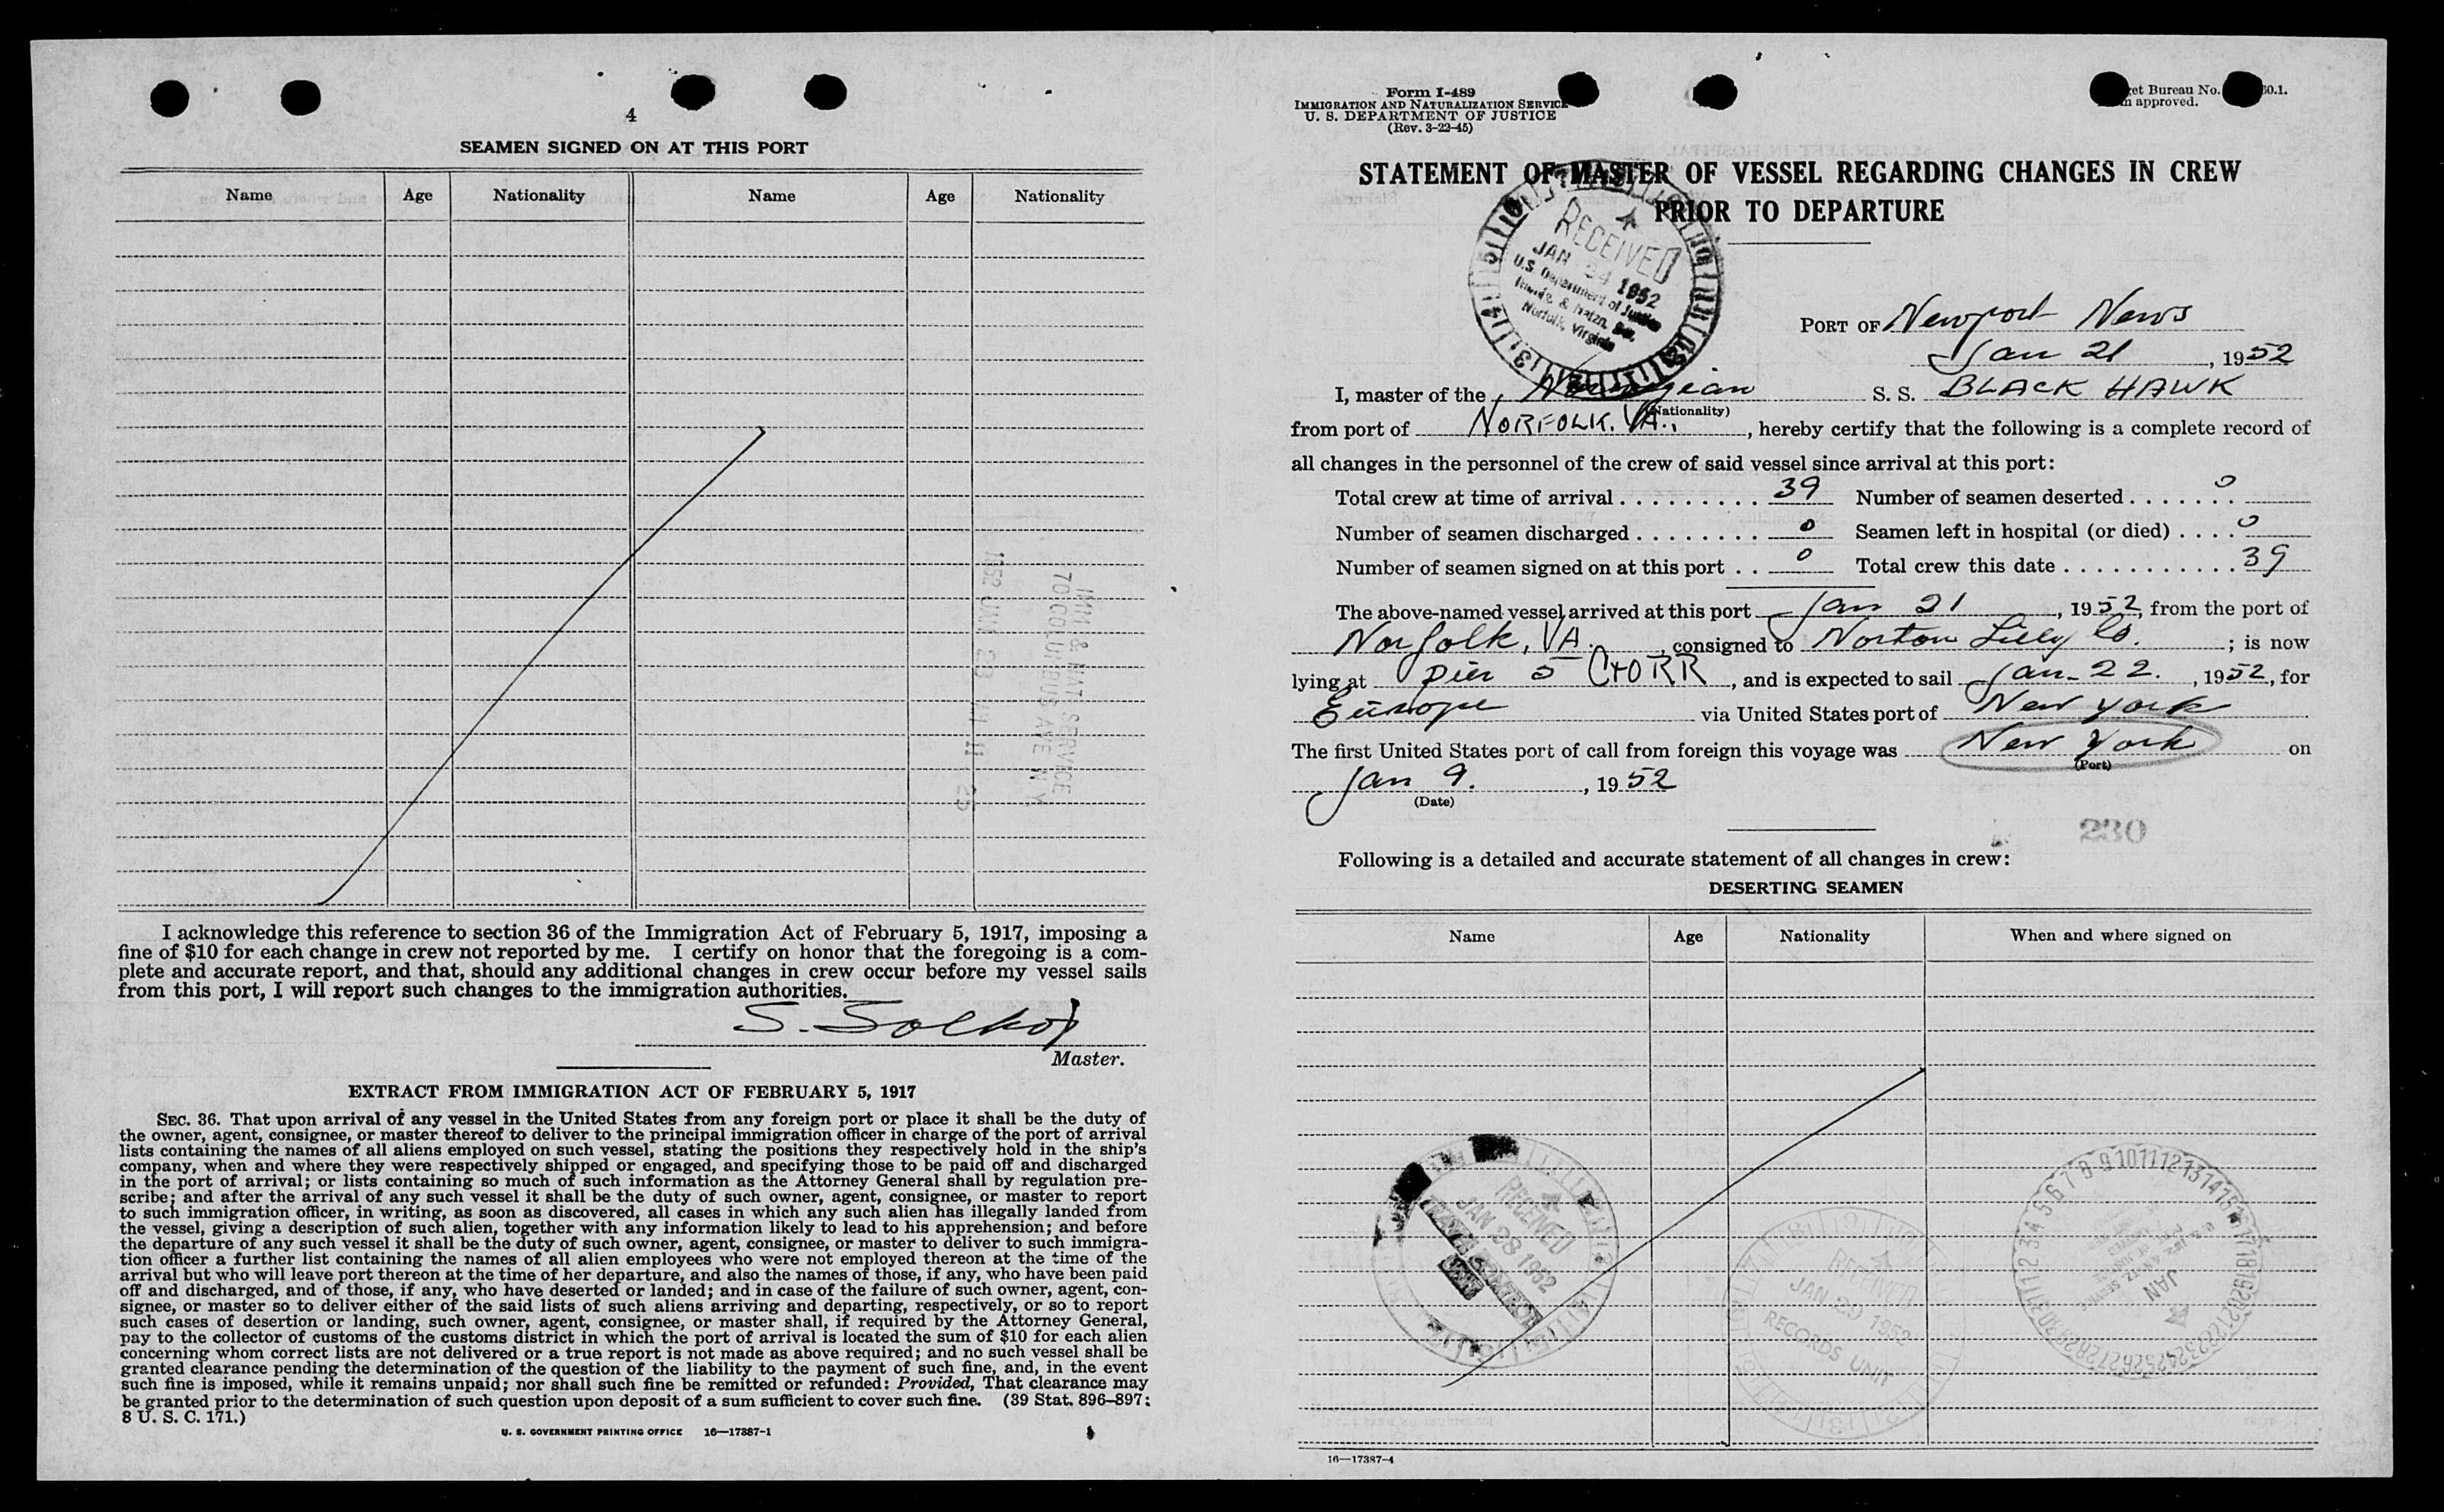 4
SEAMEN SIGNED ON AT THIS PORT
Name Age Nationality Name Age Nationality
1952 JAN 28 11 25
IMM & NAT SERVICE
70 COLUMBUS AVE N Y
I acknowledge this reference to section 36 of the Immigration Act of February 5, 1917, imposing a
fine of $10 for each change in crew not reported by me. I certify on honor that the foregoing is a com-
plete and accurate report, and that, should any additional changes in crew occur before my vessel sails
from this port, I will report such changes to the immigration authorities.
S.
Master.
EXTRACT FROM IMMIGRATION ACT OF FEBRUARY 5, 1917
SEC. 36. That upon arrival of any vessel in the United States from any foreign port or place it shall be the duty of
the owner, agent, consignee, or master thereof to deliver to the principal immigration officer in charge of the port of arrival
lists containing the names of all aliens employed on such vessel, stating the positions they respectively hold in the ship's
company, when and where they were respectively shipped or engaged, and specifying those to be paid off and discharged
in the port of arrival; or lists containing so much of such information as the Attorney General shall by regulation pre-
scribe; and after the arrival of any such vessel it shall be the duty of such owner, agent, consignee, or master to report
to such immigration officer, in writing, as soon as discovered, all cases in which any such alien has illegally landed from
the vessel, giving a description of such alien, together with any information likely to lead to his apprehension; and before
the departure of any such vessel it shall be the duty of such owner, agent, consignee, or master to deliver to such immigra-
tion officer a further list containing the names of all alien employees who were not employed thereon at the time of the
arrival but who will leave port thereon at the time of her departure, and also the names of those, if any, who have been paid
off and discharged, and of those, if any, who have deserted or landed; and in case of the failure of such owner, agent, con-
signee, or master so to deliver either of the said lists of such aliens arriving and departing, respectively, or so to report
such cases of desertion or landing, such owner, agent, consignee, or master shall, if required by the Attorney General,
pay to the collector of customs of the customs district in which the port of arrival is located the sum of $10 for each alien
concerning whom correct lists are not delivered or a true report is not made as above required; and no such vessel shall be
granted clearance pending the determination of the question of the liability to the payment of such fine, and, in the event
such fine is imposed, while it remains unpaid; nor shall such fine be remitted or refunded: Provided, That clearance may
be granted prior to the determination of such question upon deposit of a sum sufficient to cover such fine. (39 Stat. 896–897;
8 U. S. C. 171.)
U. S. GOVERNMENT PRINTING OFFICE 16—17387-1
Form I-489
IMMIGRATION AND NATURALIZATION SERVICE
U. S. DEPARTMENT OF JUSTICE
(Rev. 3-22-45)
get Bureau No. 30.1.
approved.
STATEMENT OF MASTER OF VESSEL REGARDING CHANGES IN CREW
PRIOR TO DEPARTURE
RECEIVED
JAN 24 1952
U.S. Department of Justice
Immig. & Natzn. Ser.
Norfolk, Virginia
PORT OF Newport News
Jan 21, 1952
I, master of the Norwegian S. S. BLACK HAWK
(Nationality)
from port of NORFOLK. VA., hereby certify that the following is a complete record of
all changes in the personnel of the crew of said vessel since arrival at this port:
Total crew at time of arrival . . . . . . . . . 39 Number of seamen deserted . . . . . . . 0
Number of seamen discharged . . . . . . . . 0 Seamen left in hospital (or died) . . . . 0
Number of seamen signed on at this port . . 0 Total crew this date . . . . . . . . . . . 39
The above-named vessel arrived at this port Jan 21, 1952, from the port of
Norfolk, VA., consigned to Norton Lilly Co.; is now
lying at pier 5 C+ORR, and is expected to sail Jan. 22., 1952, for
Europe via United States port of New York
The first United States port of call from foreign this voyage was New York on
(Port)
Jan 9., 1952
(Date)
230
Following is a detailed and accurate statement of all changes in crew:
DESERTING SEAMEN
Name Age Nationality When and where signed on
RECEIVED
JAN 28 1952
TRAVEL CONTROL
UNIT
RECEIVED
JAN 29 1952
RECORDS UNIT
JAN
16—17387-4